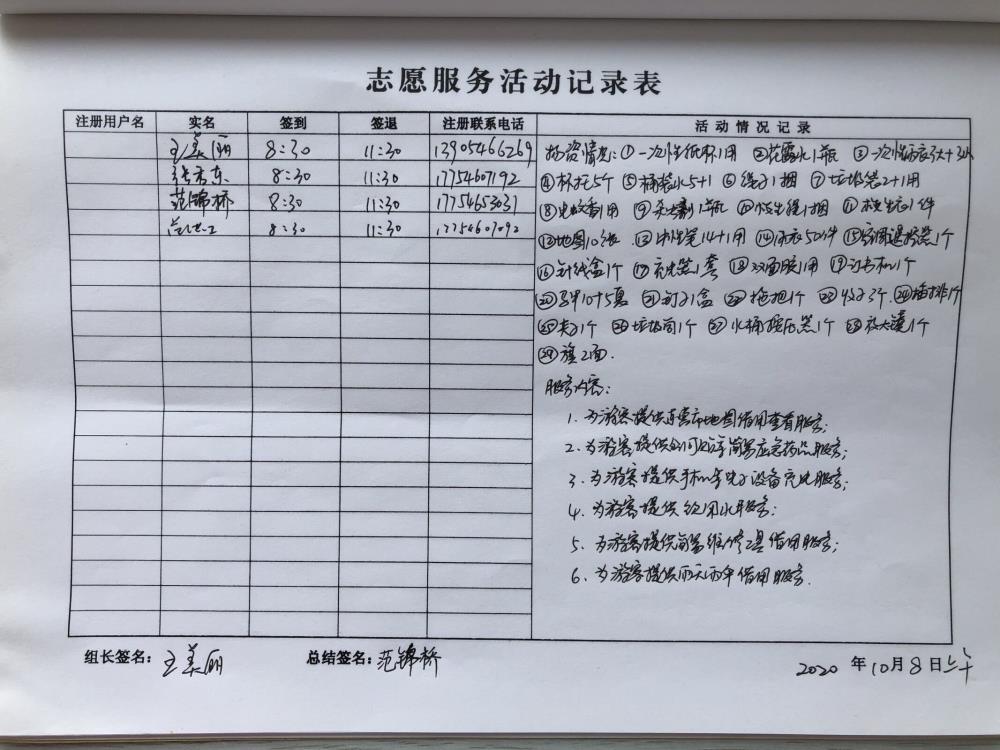 志愿服务活动记录表
注册用户名 实名 签到 签退 注册联系电话 活动情况记录
王美丽 8:30 11:30 13905466269
8:30 11:30 17754607192
范锦桥 8:30 11:30 17754653031
8:30 11:30 17754607092
物资情况:①一次性纸杯1用 ②花露水1瓶 ③一次性雨衣
④杯托5个 ⑤桶装水5+1 ⑥绳子1捆 ⑦垃圾袋2+1用
⑧电蚊香1用 ⑨杀虫剂1瓶 ⑩ ⑪救生衣1件
⑫地图10张 ⑬中性笔14+1用 ⑭雨衣50件 ⑮ 1个
⑯针线盒1个 ⑰充电器1套 ⑱双面胶1用 ⑲订书机1个
⑳马甲10+5夏 ㉑钉子1盒 ㉒拖把1个 ㉓ 3个 ㉔插排1个
㉕夹子1个 ㉖垃圾筒1个 ㉗水桶按压器1个 ㉘放大镜1个
㉙旗2面.
服务内容:
1、为游客提供东营市地图借用查看服务;
2、为游客提供 简易应急药品服务;
3、为游客提供手机等电子设备充电服务;
4、为游客提供饮用水服务;
5、为游客提供简易维修工具借用服务;
6、为游客提供雨天雨伞借用服务.
组长签名:王美丽 总结签名:范锦桥 2020年10月8日上午